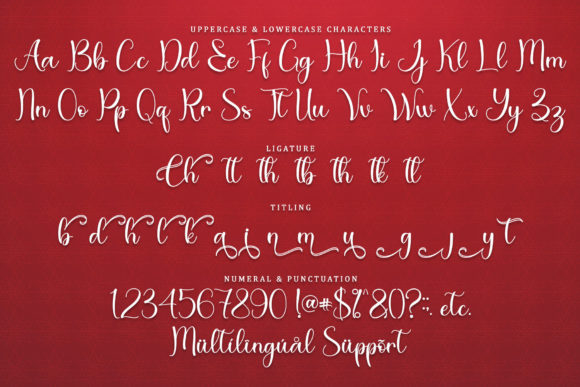 UPPERCASE & LOWERCASE CHARACTERS
Aa Bb Cc Dd Ee Ff Gg Hh Ii Jj Kl Ll Mm
Nn Oo Pp Qq Rr Ss Tt Uu Vv Ww Xx Yy Zz
LIGATURE
Ch tt th tb th tk tl
TITLING
b d h l k a i n m u g j y t
NUMERAL & PUNCTUATION
1234567890 !@#$%^&()?:;. etc.
Mültilingúål Süppõrt